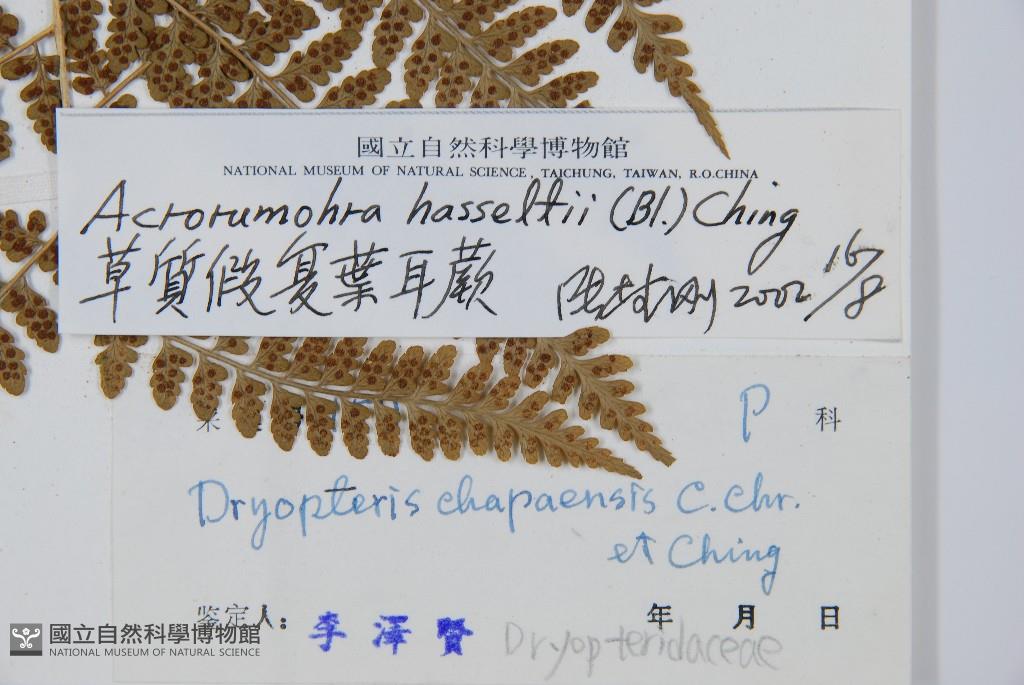 國立自然科學博物館
NATIONAL MUSEUM OF NATURAL SCIENCE, TAICHUNG, TAIWAN, R.O.CHINA
Acrorumohra hasseltii (Bl.) Ching
草質假复葉耳蕨 2002 16/8
P 科
Dryopteris chapaensis C. Chr.
et Ching
鉴定人: 李澤賢 年 月 日
Dryopteridaceae
國立自然科學博物館
NATIONAL MUSEUM OF NATURAL SCIENCE